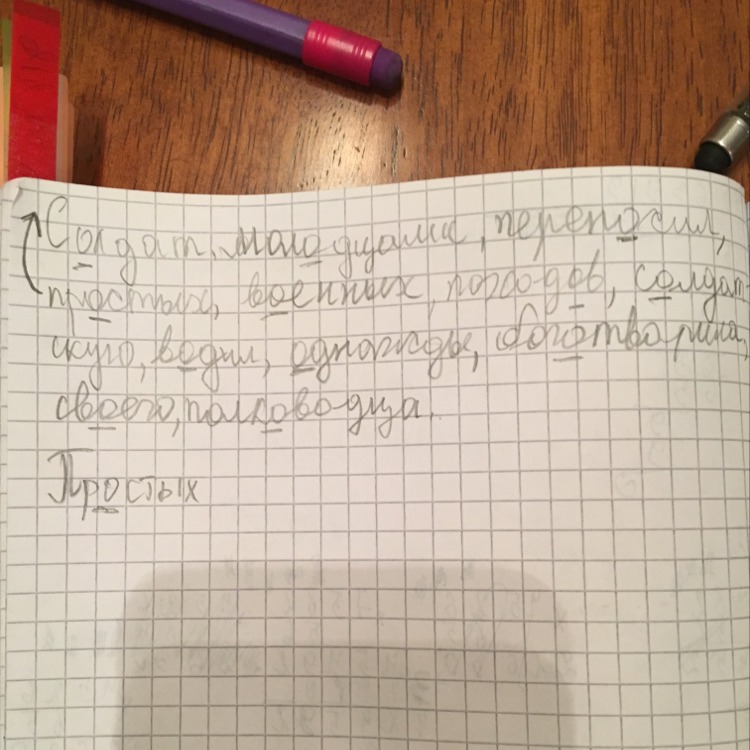 Солдат, молодцами, переносил,
простых, военных, походов, солдат-
скую, водил, однажды, боготворила,
своего, полководца.
Простых